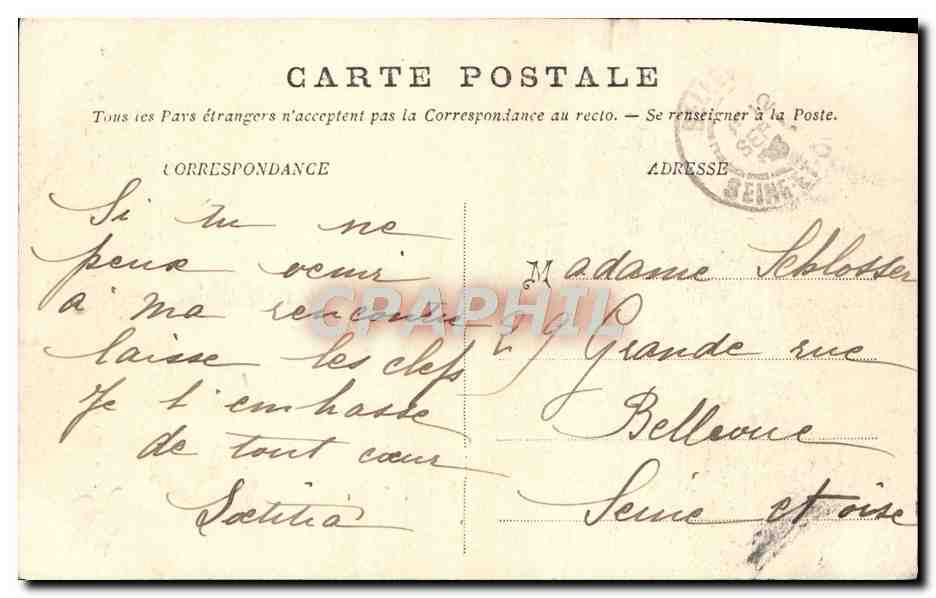 CARTE POSTALE
Tous les Pays étrangers n'acceptent pas la Correspondance au recto. — Se renseigner à la Poste.
CORRESPONDANCE
Si tu ne
peux venir
à ma rencontre
laisse les clefs
Je t'embrasse
de tout cœur
Lætitia
ADRESSE
Madame Schlosser
29 Grande rue
Bellevue
Seine et oise
SEINE
CPAPHIL